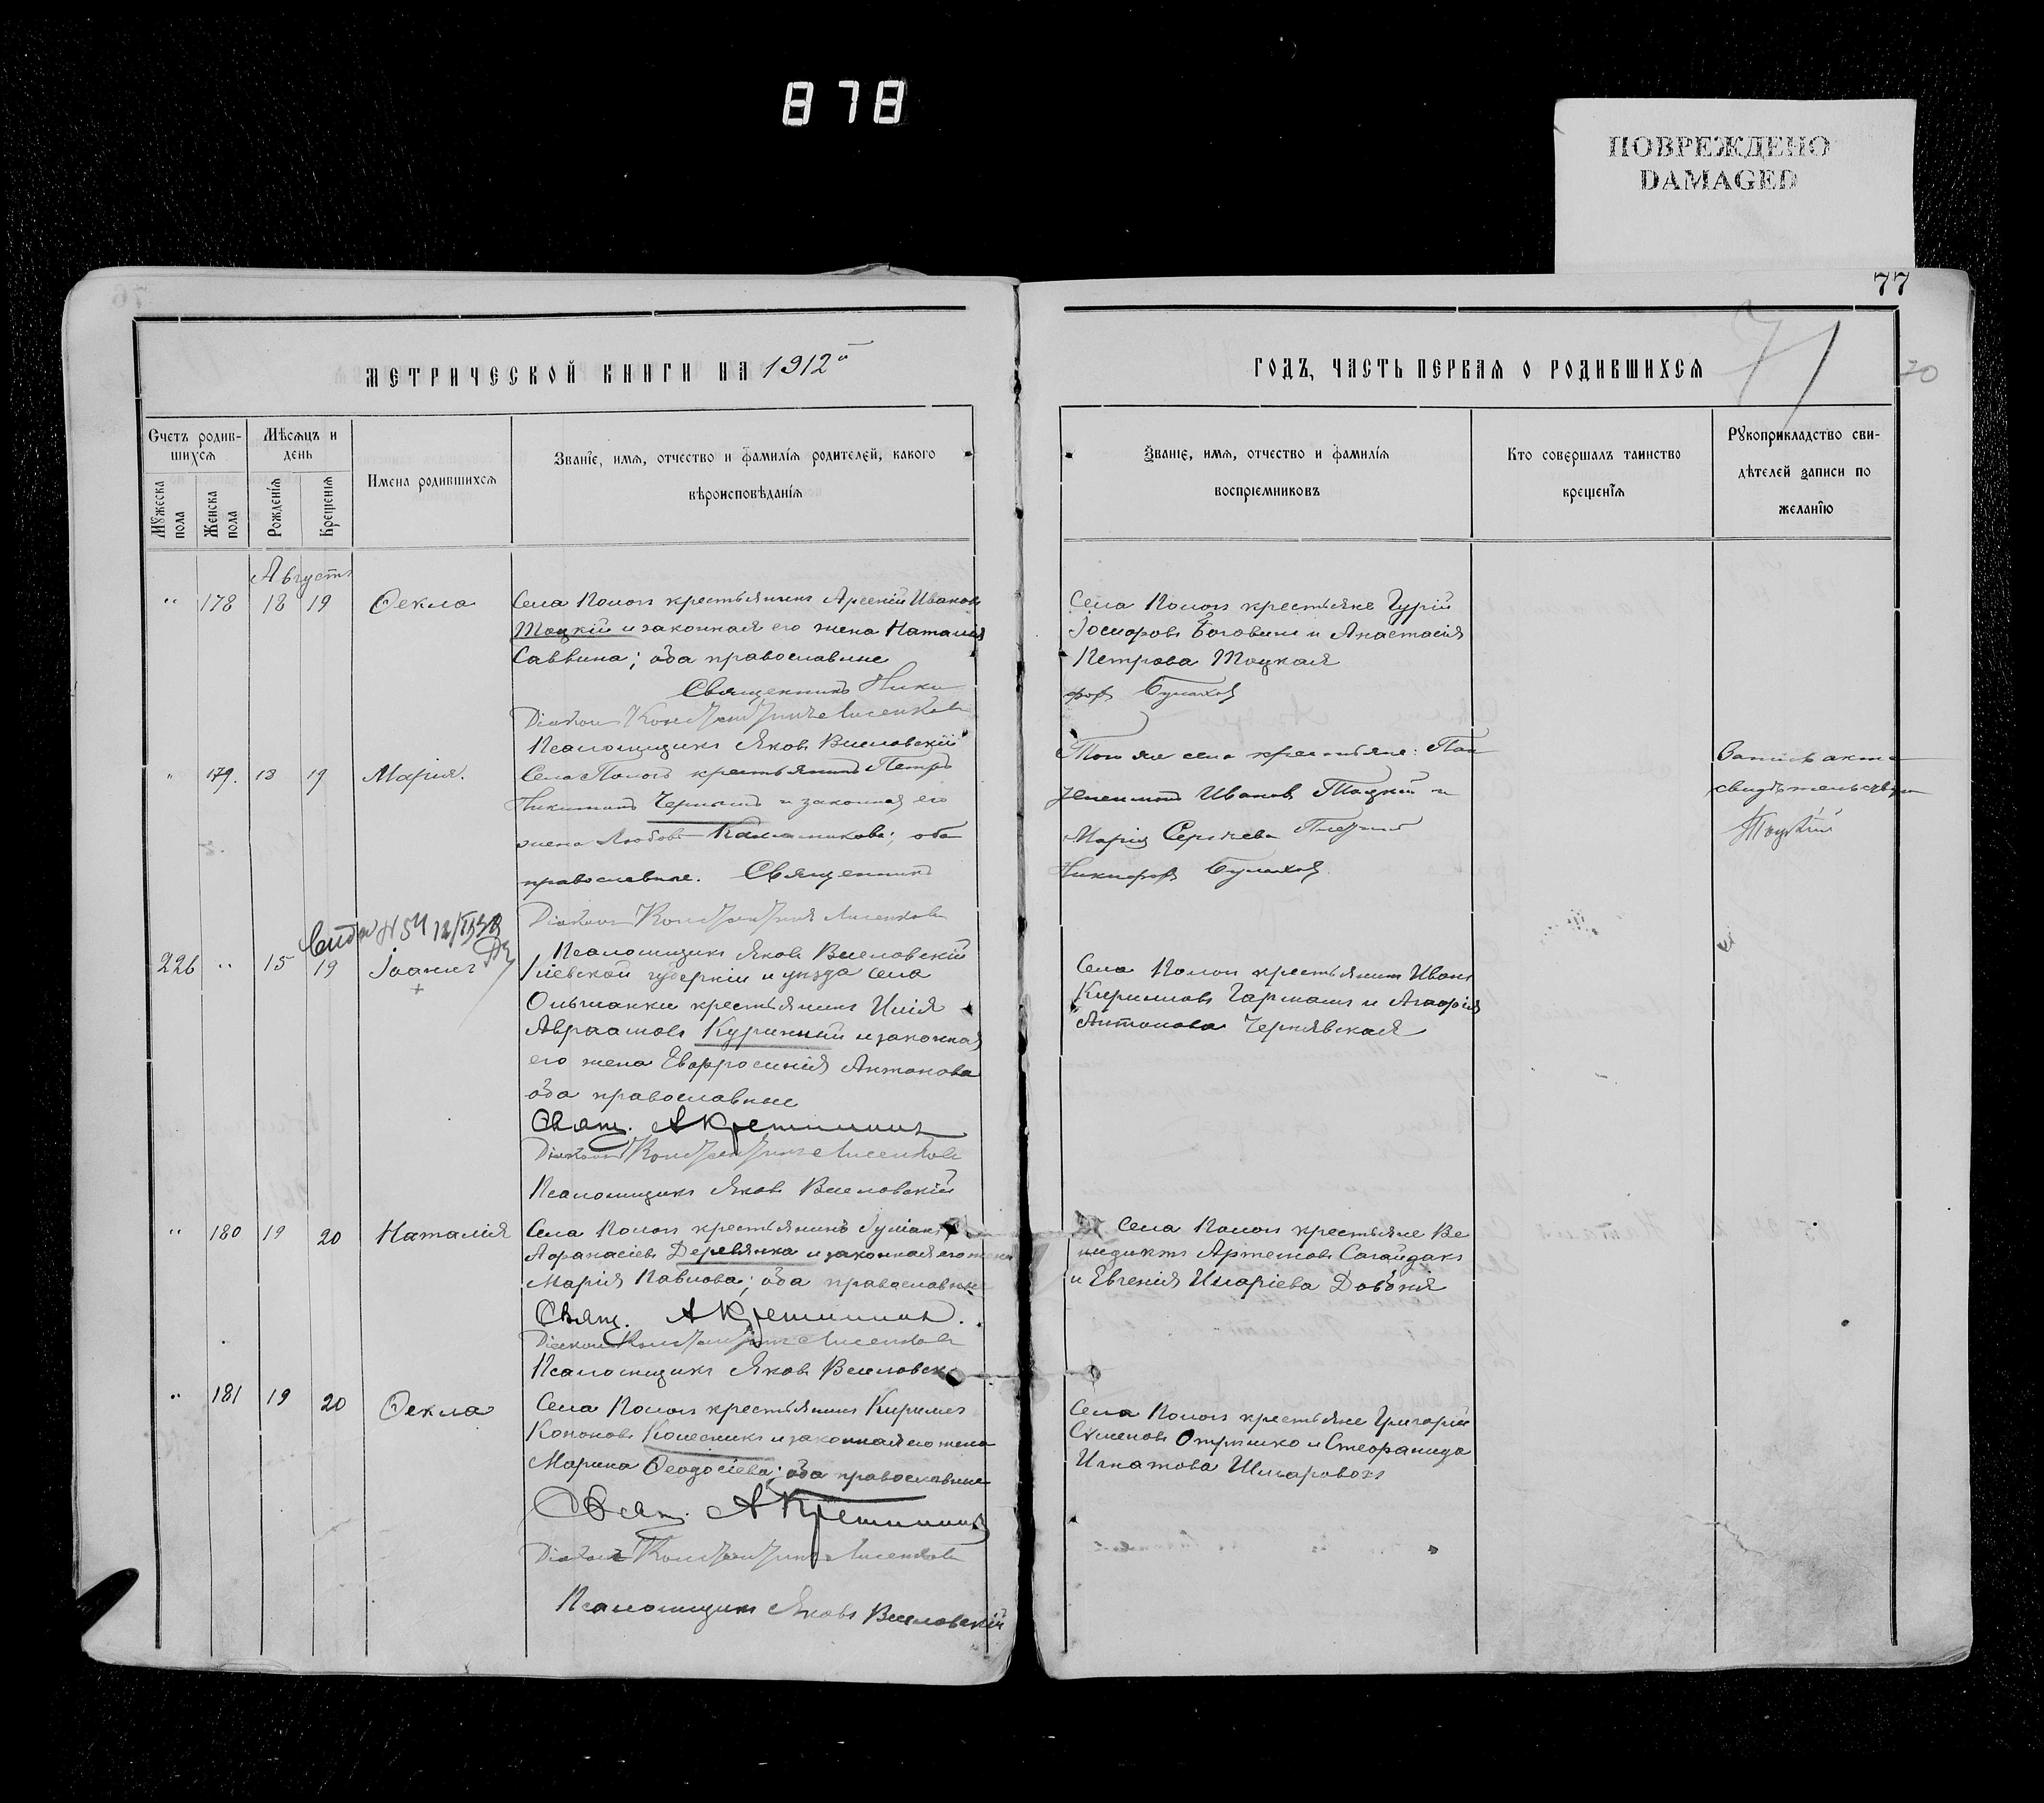 878
ПОВРЕЖДЕНО
DAMAGED
77
71
70
МЕТРИЧЕСКОЙ КНИГИ НА 1912й
ГОДЪ, ЧАСТЬ ПЕРВАЯ О РОДИВШИХСЯ
Счетъ родив-
шихся
Мѣсяцъ и
день
Мужеска
пола
Женска
пола
Рожденія
Крещенія
Имена родившихся
Званіе, имя, отчество и фамилія родителей, какого
вѣроисповѣданія
Званіе, имя, отчество и фамилія
воспріемниковъ
Кто совершалъ таинство
крещенія
Рукоприкладство сви-
дѣтелей записи по
желанію
Августъ
" 178 18 19 Ѳекла
Села Пологъ крестьянинъ Арсеній Ивановъ
Тоцкій и законная его жена Наталія
Саввина; оба православные
Священникъ Ники
Діаконъ Константинъ Лисенковъ
Псаломщикъ Яковъ
Села Пологъ крестьяне Гурій
Петрова Тоцкая
фор
" 179. 13 19 Марія.
Села Пологъ крестьянинъ Петръ
Никитинъ и законная его
жена Любовь оба
православные. Священникъ
Діаконъ Константинъ Лисенковъ
Псаломщикъ Яковъ
Того же села крестьяне:
Ивановъ Тоцкій и
Марія Сергѣева
Никифор
Запись акта
свидѣтельствую
Тоцкій
N 54
226 " 15 19 Іоаннъ
Кіевской губерніи и уѣзда села
Ольшанки крестьянинъ Илія
Авраамовъ Куринный и законная
его жена Евфросинія Антонова
оба православные
Свящ. А
Діаконъ Константинъ Лисенковъ
Псаломщикъ Яковъ
Села Пологъ крестьянинъ Иванъ
Кирилловъ Гармашъ и Агафія
Антонова Чернявская
" 180 19 20 Наталія
Села Пологъ крестьянинъ
Афанасіевъ Деревянка и законная его жена
Марія Павлова; оба православные
Свящ. А
Діаконъ Константинъ Лисенковъ
Псаломщикъ Яковъ
Села Пологъ крестьяне Ве
недиктъ Артемовъ Сагайдакъ
и Евгенія Иларіева Довбня
" 181 19 20 Ѳекла
Села Пологъ крестьянинъ Кириллъ
Кононовъ Колесникъ и законная его жена
Марина Ѳеодосіева; оба православные
Свящ. А
Діаконъ Константинъ Лисенковъ
Псаломщикъ Яковъ
Села Пологъ крестьяне Григорій
Семеновъ и Стефанида
Игнатова